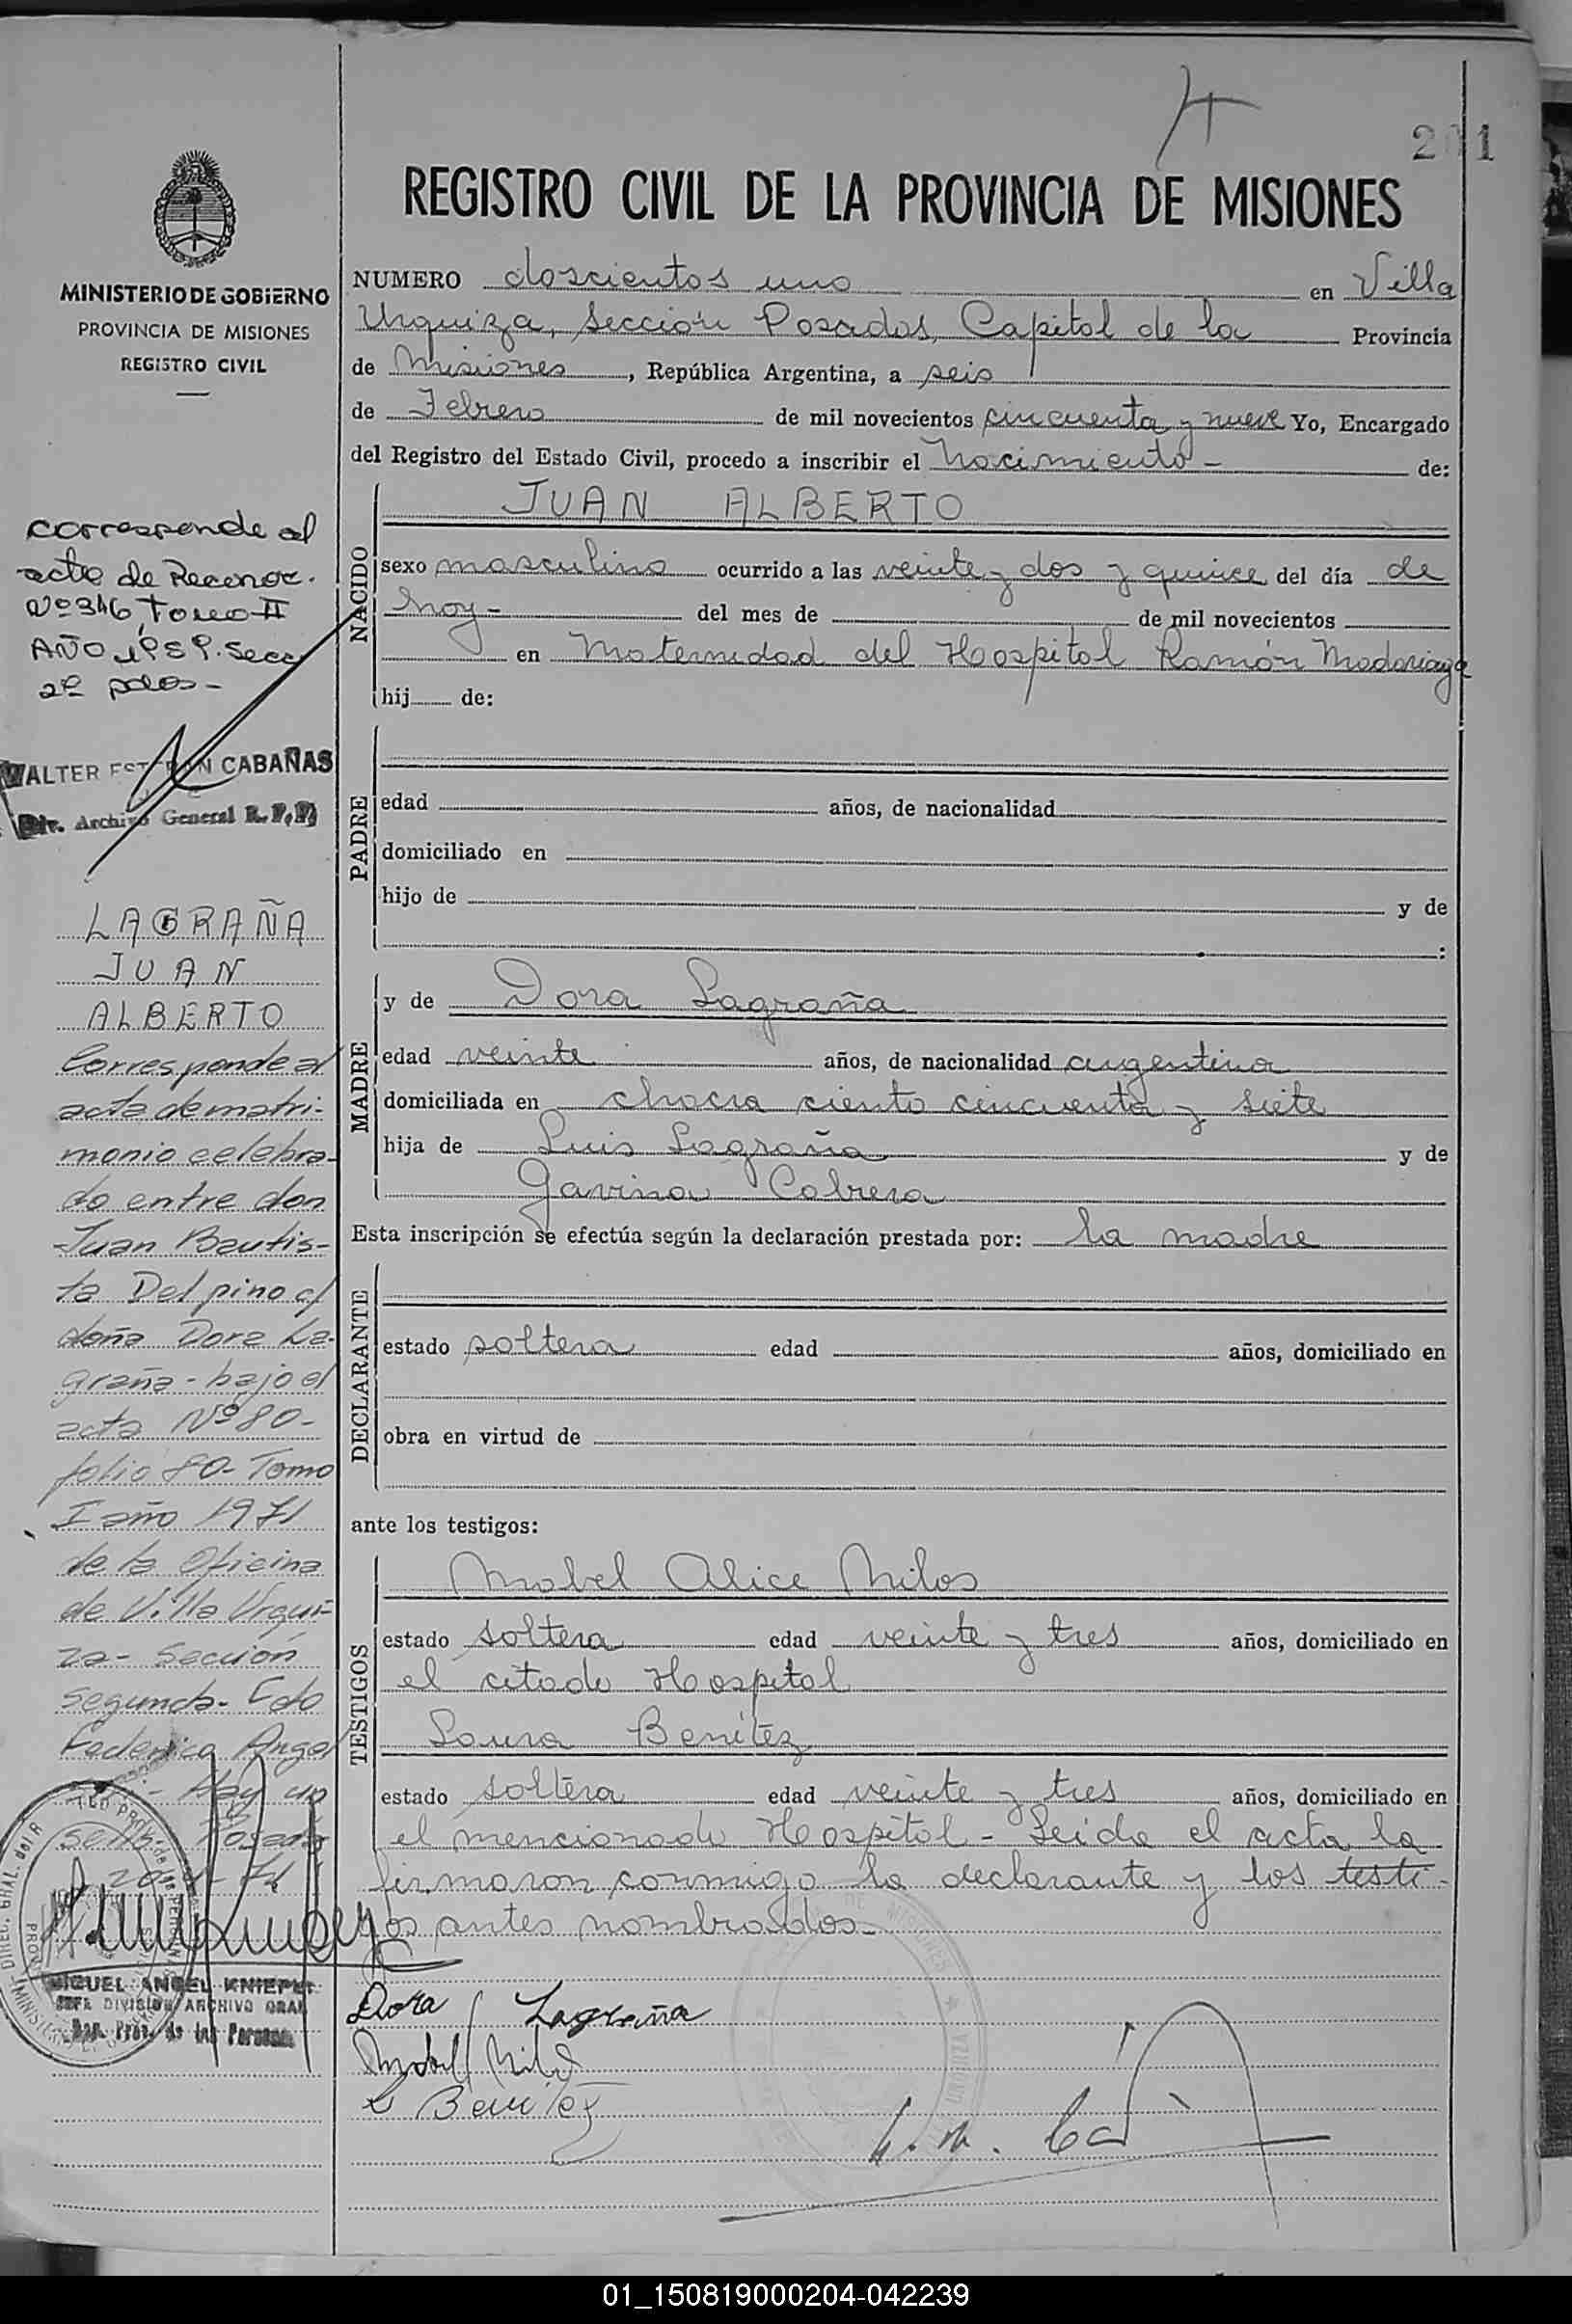 201
REGISTRO CIVIL DE LA PROVINCIA DE MISIONES
MINISTERIO DE GOBIERNO
PROVINCIA DE MISIONES
REGISTRO CIVIL
corresponde al
acta de Reconoc.
Nº 346, Tomo II
AÑO 1959. Secc
2º pdas-
WALTER ESTEBAN CABAÑAS
Div. Archivo General R.P.P.
LAGRAÑA
JUAN
ALBERTO
Corresponde al
acta de matri-
monio celebra-
do entre don
Juan Bautis-
ta Delpino c/
doña Dora La-
graña - bajo el
acta Nº 80-
folio 80- Tomo
I año 1971
de la Oficina
de Villa Urqui-
za - Sección
segunda- Fdo
Federico Angel
Hay un
sello Posadas
MIGUEL ANGEL KNIEPE
JEFE DIVISION ARCHIVO GRAL
Prov. de las Personas
NUMERO doscientos uno en Villa
Urquiza, Sección Posadas, Capital de la Provincia
de Misiones, República Argentina, a seis
de Febrero de mil novecientos cincuenta y nueve Yo, Encargado
del Registro del Estado Civil, procedo a inscribir el Nacimiento - de:
NACIDO
JUAN ALBERTO
sexo masculino ocurrido a las veinte y dos y quince del día de
hoy - del mes de de mil novecientos
en Maternidad del Hospital Ramón Madariaga
hij de:
PADRE
edad años, de nacionalidad
domiciliado en
hijo de y de
:
MADRE
y de Dora Lagraña
edad veinte años, de nacionalidad argentina
domiciliada en chacra ciento cincuenta y siete
hija de Luis Lagraña y de
Gavina Cabrera
Esta inscripción se efectúa según la declaración prestada por: la madre
DECLARANTE
estado soltera edad años, domiciliado en
obra en virtud de
ante los testigos:
TESTIGOS
Mabel Alice Milos
estado soltera edad veinte y tres años, domiciliado en
el citado Hospital
Laura Benítez
estado soltera edad veinte y tres años, domiciliado en
el mencionado Hospital - Leida el acta la
firmaron conmigo la declarante y los testi-
gos antes nombrados.-
Dora Lagraña
Mabel Milos
L Benítez
01_150819000204-042239